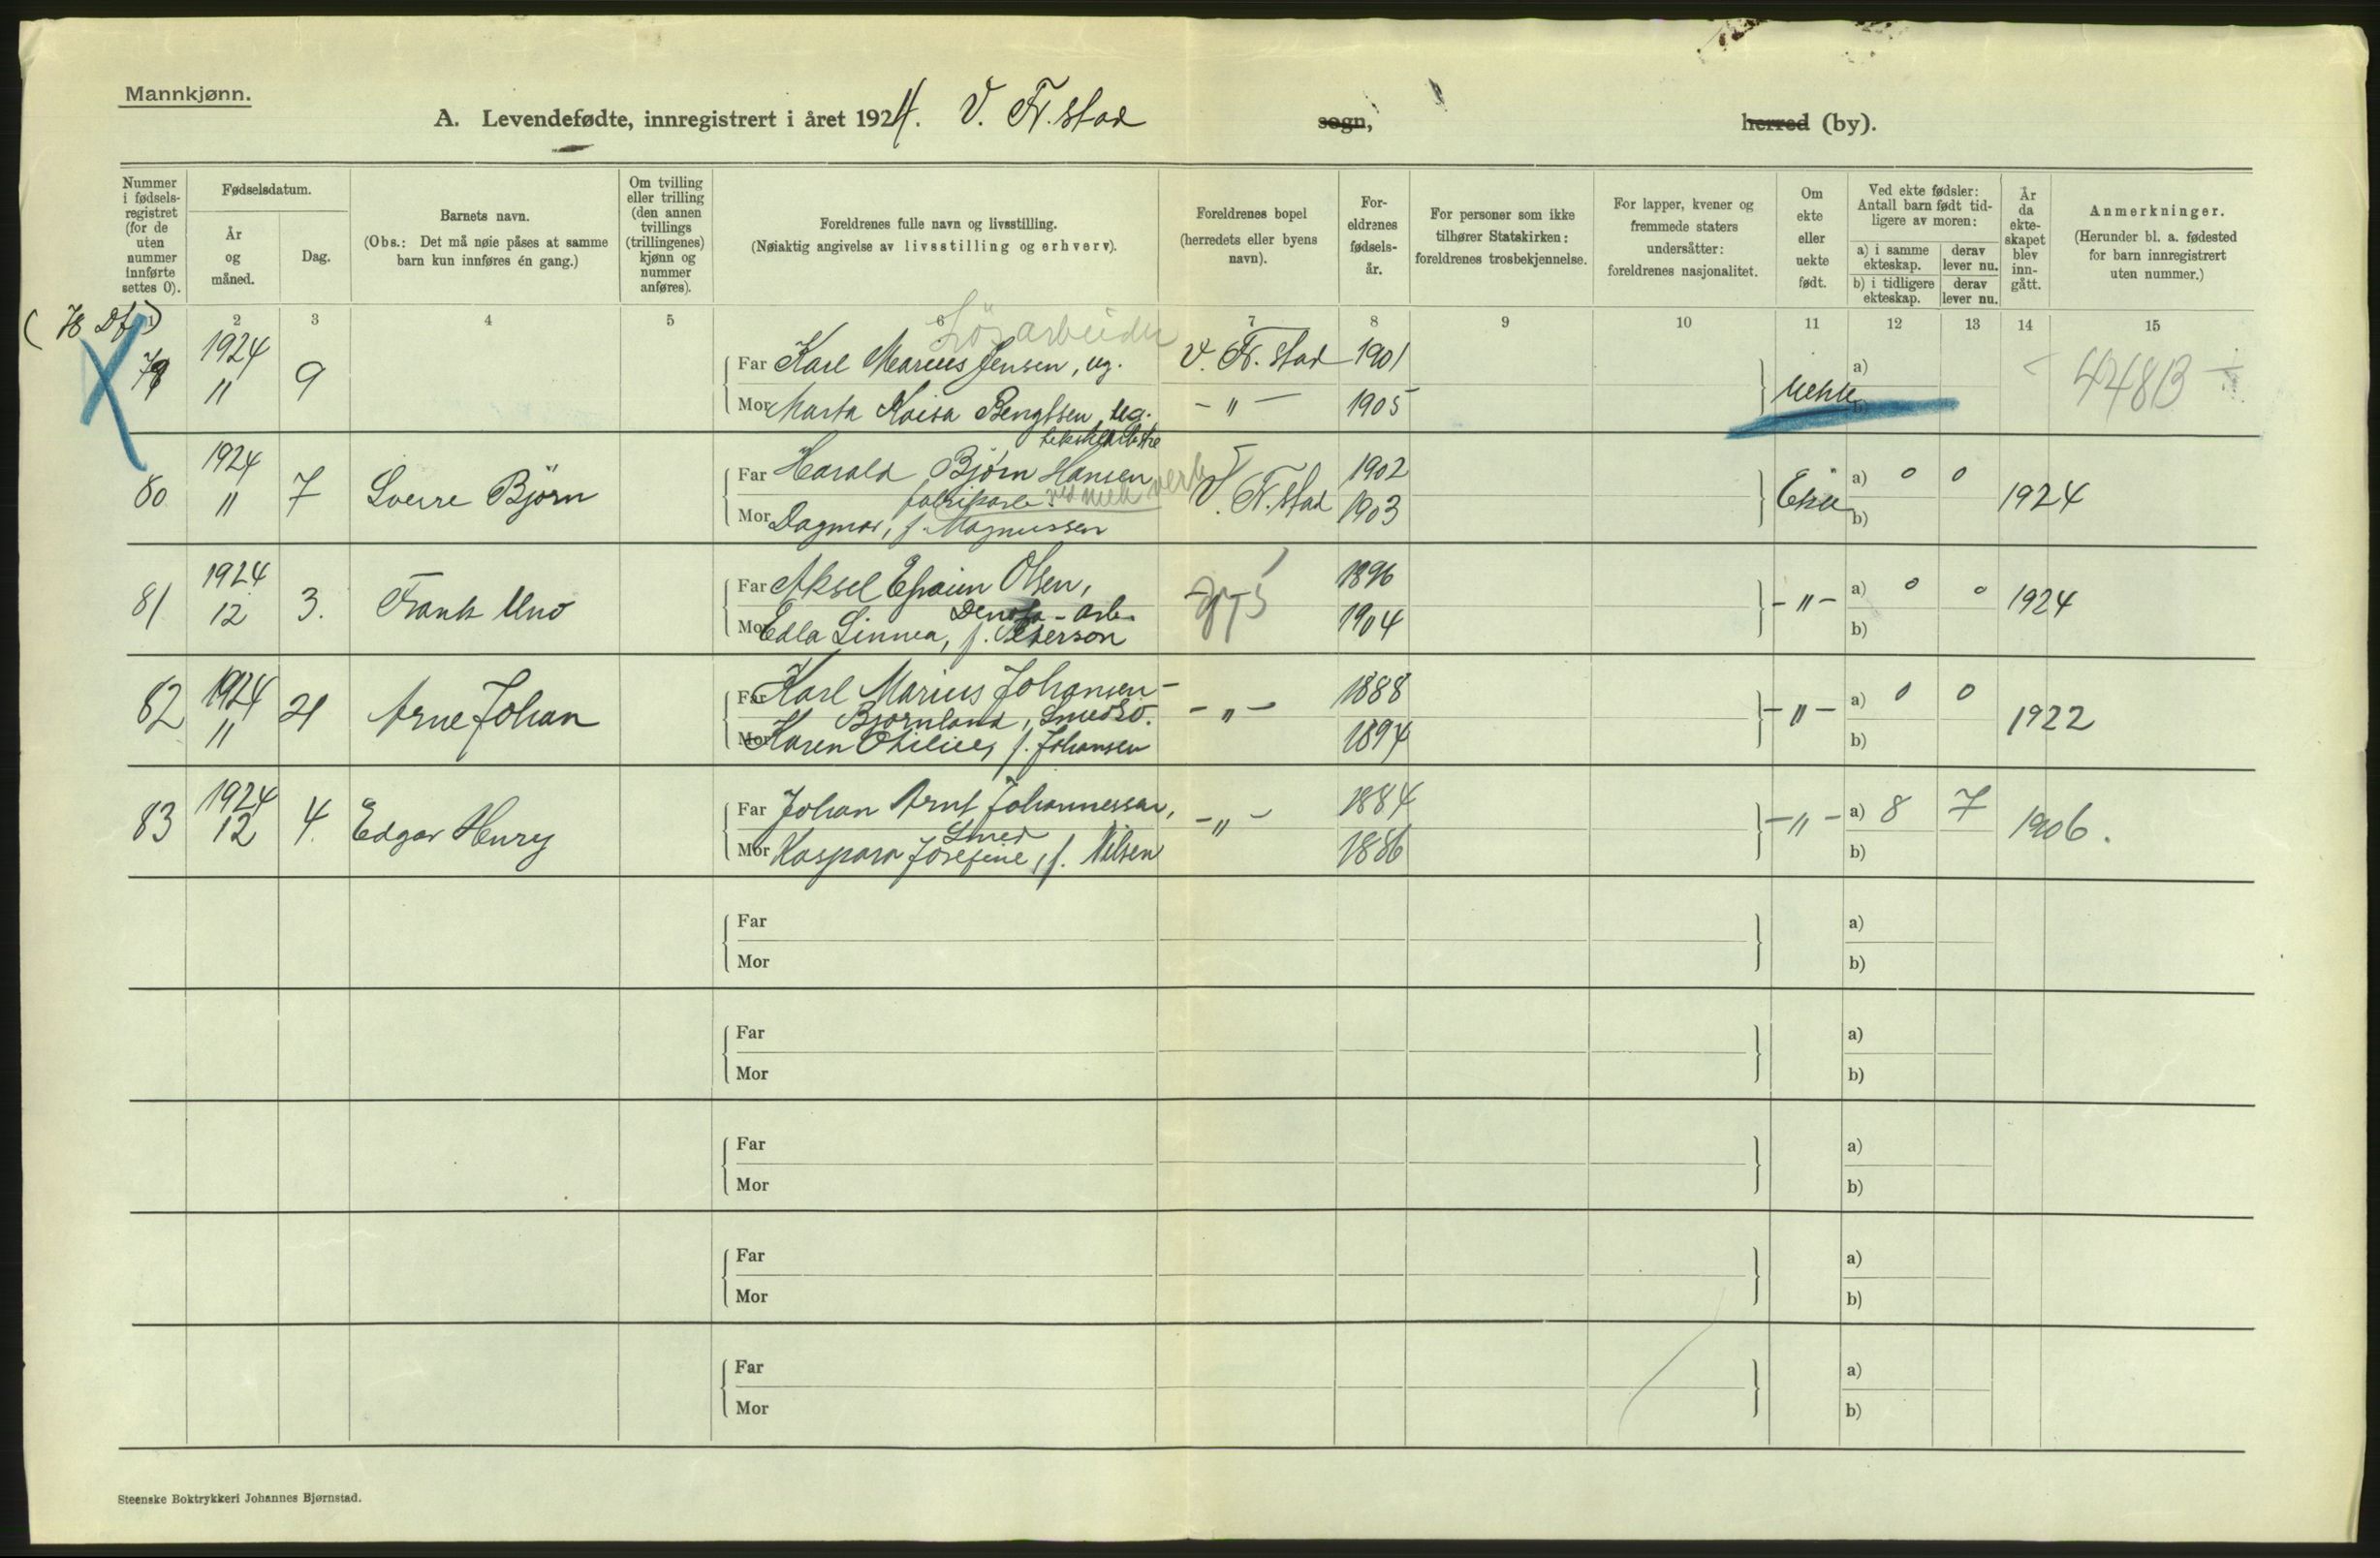 Mannkjønn.
A. Levendefødte, innregistrert i året 1924. V. Fr. stad sogn, herred (by).
Nummer i fødsels-registret (for de uten nummer innførte settes 0).
Fødselsdatum.
År og måned.
Dag.
Barnets navn.
(Obs.: Det må nøie påses at samme barn kun innføres én gang.)
Om tvilling eller trilling (den annen tvillings (trillingenes) kjønn og nummer anføres).
Foreldrenes fulle navn og livsstilling.
(Nøiaktig angivelse av livsstilling og erhverv).
Foreldrenes bopel (herredets eller byens navn).
For-eldrenes fødsels-år.
For personer som ikke tilhører Statskirken: foreldrenes trosbekjennelse.
For lapper, kvener og fremmede staters undersåtter: foreldrenes nasjonalitet.
Om ekte eller uekte født.
Ved ekte fødsler: Antall barn født tid-ligere av moren:
a) i samme ekteskap.
derav lever nu.
b) i tidligere ekteskap.
derav lever nu.
År da ekte-skapet blev inn-gått.
Anmerkninger.
(Herunder bl. a. fødested for barn innregistrert uten nummer.)
1 2 3 4 5 6 7 8 9 10 11 12 13 14 15
(78 Df)
Løsarbeider
79 1924 11 9 Far Karl Marius Jensen, ug. V. Fr. stad 1901 Uekte a) 448B
Mor Marta Kaisa Bengtsen, ug. - " - 1905 b)
80 1924 11 7 Sverre Bjørn Far Harald Bjørn Hansen V. Fr. stad 1902 Ekte a) 0 0 1924
fabrikarb. ved mek verk
Mor Dagmar, f. Magnussen 1903 b)
81 1924 12 3. Frank Uno Far Aksel Efraim Olsen, 1896 - " - a) 0 0 1924
Denofa-arb.
Mor Edla Linnea, f. Peterson 1904 b)
82 1924 11 21 Arne Johan Far Karl Marius Johansen - - " - 1888 - " - a) 0 0 1922
Bjørnland, Smed
Mor Karen Otilie, f. Johansen 1894 b)
83 1924 12 4. Edgar Henry Far Johan Arnt Johannessen, - " - 1884 - " - a) 8 7 1906.
Smed
Mor Kaspara Josefine, f. Nilsen 1886 b)
Far a)
Mor b)
Far a)
Mor b)
Far a)
Mor b)
Far a)
Mor b)
Far a)
Mor b)
Steenske Boktrykkeri Johannes Bjørnstad.